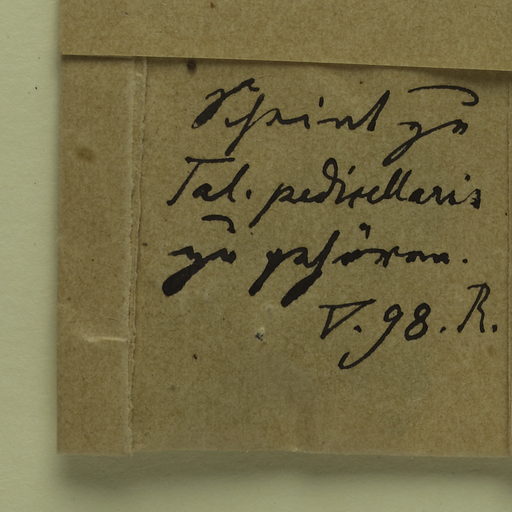 Scheint zu
Tal. pedicellaris
zu gehören.
V. 98. R.